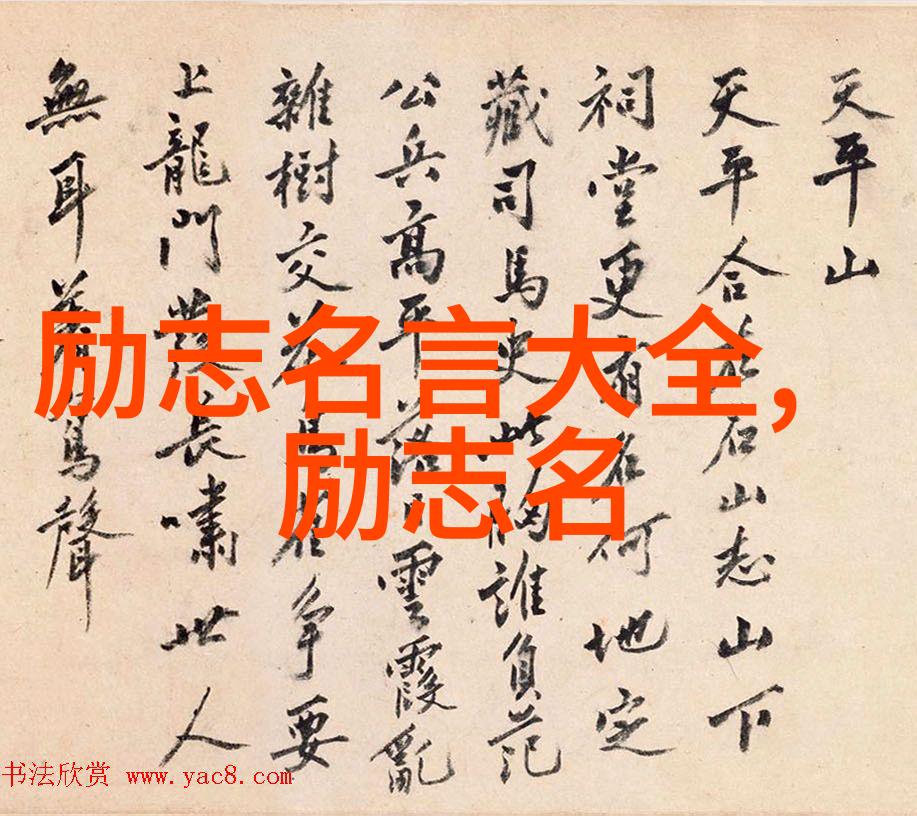 天平山
天平合石山志山下
祠堂更有在何地定
藏司馬史此誰負范
公兵高平落日雲霞亂
雜樹交花争要
上龍門發長嘯世人
無耳着聲
励志名言大全，
励志名
书法欣赏 www.yac8.com